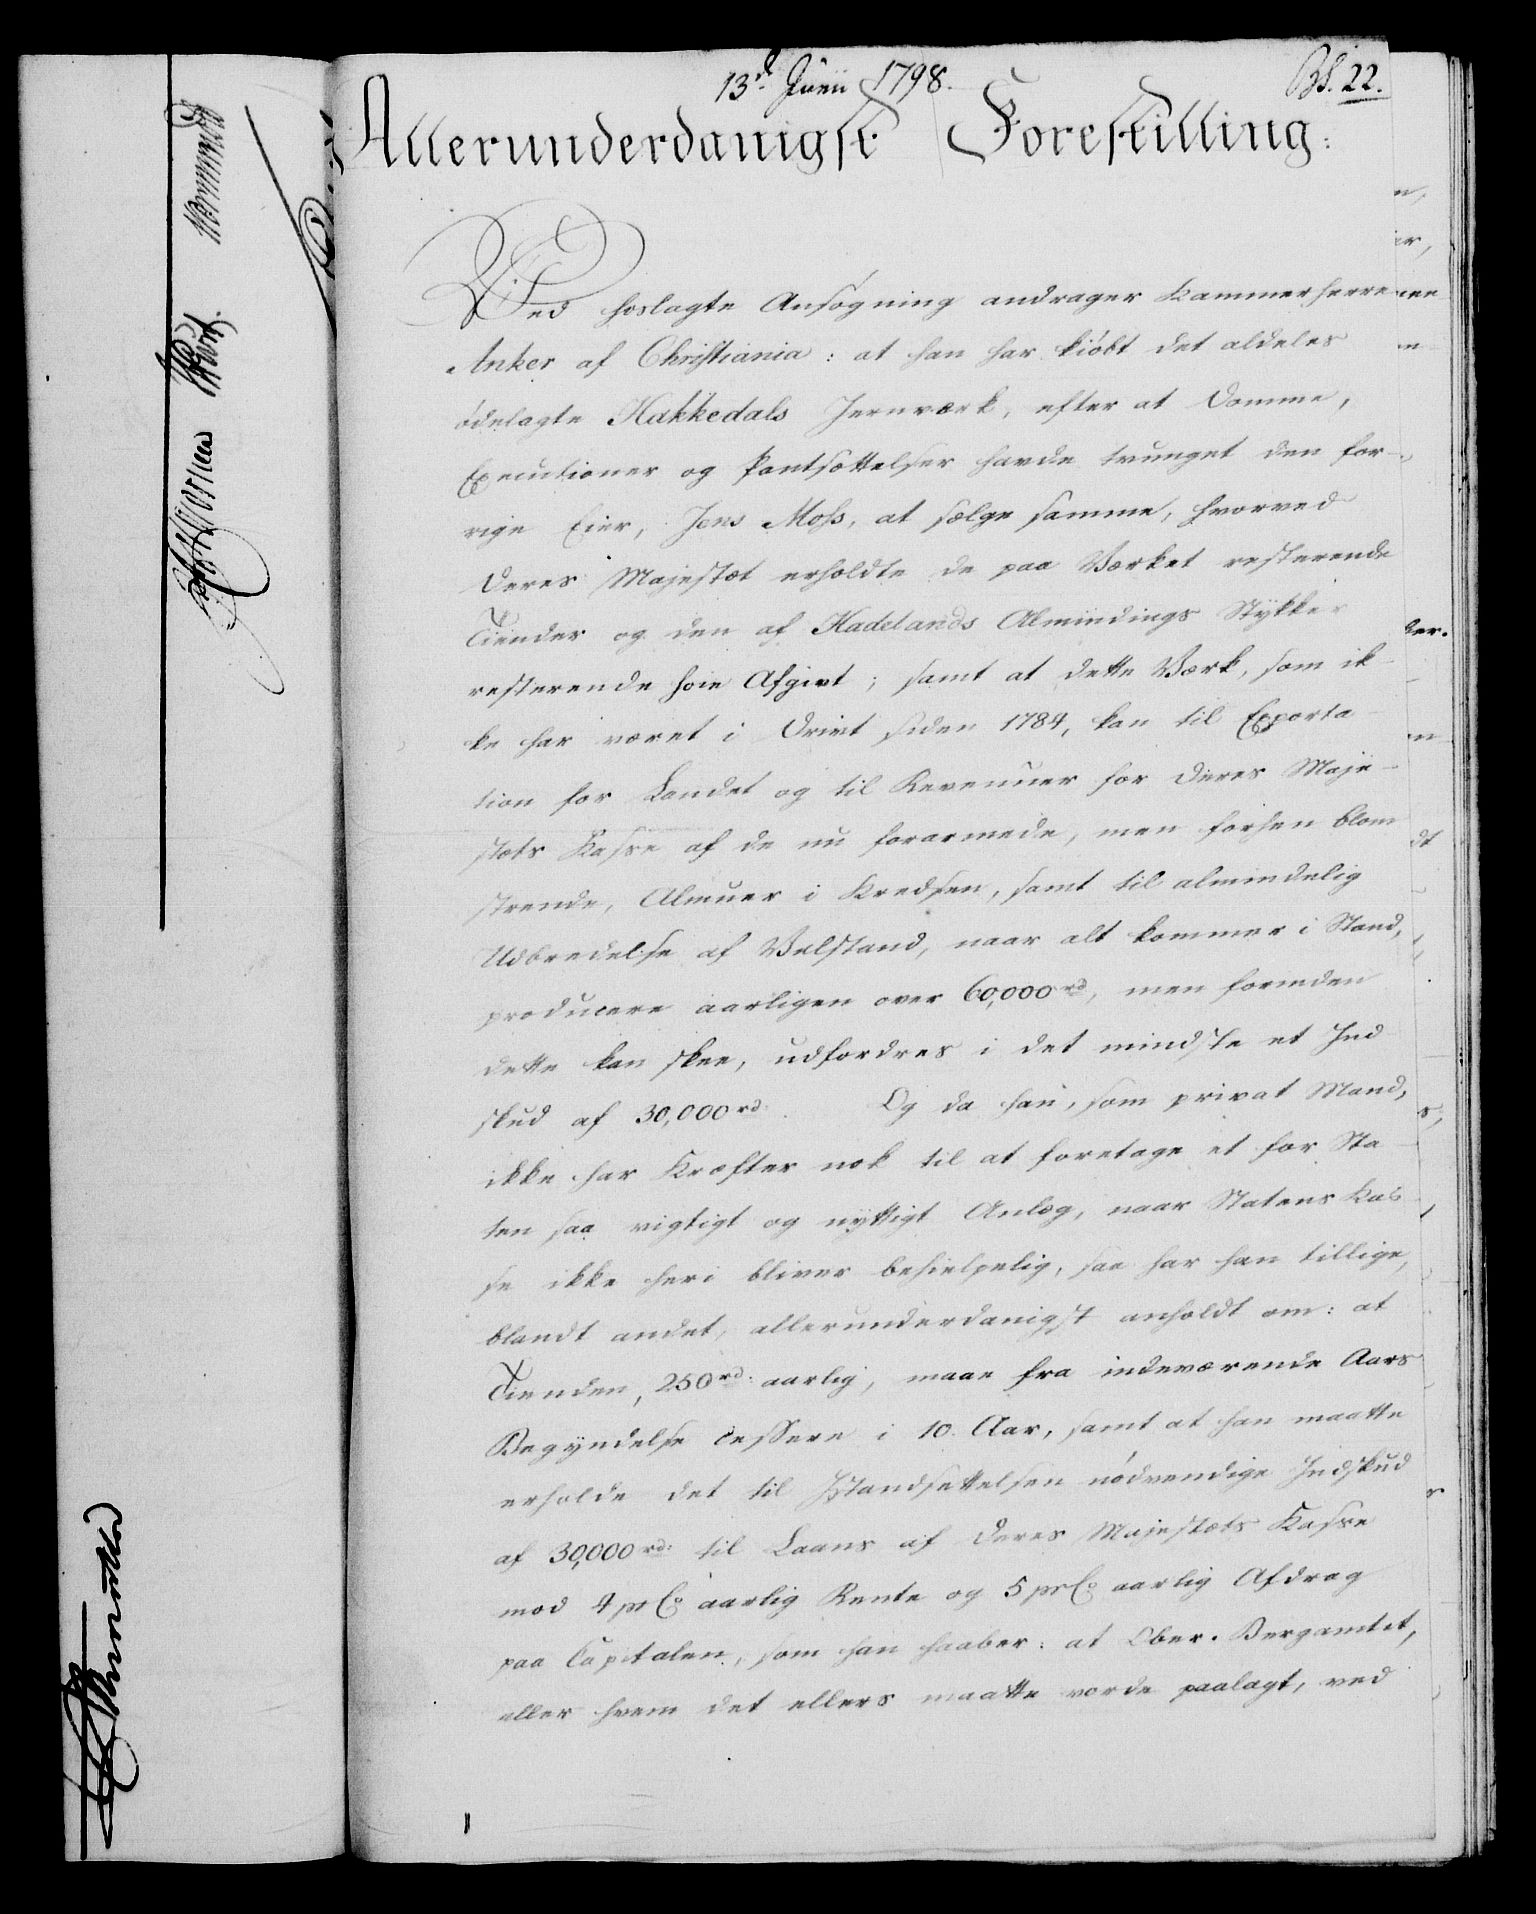 13.d Junii 1798.
Bs. 22.
Allerunderdanigst Forestilling:
Ved hoslagte Ansøgning andrager Kammerherre
Anker af Christiania: at han har kiøbt det aldeles
ødelagte Hakkedals Jernværk, efter at Domme,
Executioner og Pantsættelser havde tvunget den for-
rige Eier, Jens Moss, at sælge samme, hvorved
Deres Majestæt erholdte de paa Værket resterende
Tiender og den af Hadelands Almindings Stykker
resterende høie Afgivt; samt at dette Værk, som ik-
ke har været i Drivt siden 1784, kan til Exporta-
tion for Landet og til Revenuer for Deres Maje-
stæts Kasse af de nu forarmede, men forhen blom
strende, Almuer i Kredsen, samt til almindelig
Udbredelse af Velstand, naar alt kommer i Stand,
producere aarligen over 60,000 rd, men forinden
dette kan skee, udfordres i det mindste et Ind
skud af 30,000 rd. Og da han, som privat Mand,
ikke har Kræfter nok til at foretage et for Sta-
ten saa vigtigt og nyttigt Anlæg, naar Statens Kas
se ikke heri bliver behielpelig, saa har han tillige,
blandt andet, allerunderdanigst anholdt om: at
Tienden, 250 rd: aarlig, maae fra indeværende Aars
Begyndelse cessere i 10 Aar, samt at han maatte
erholde det til Istandsettelsen nødvendige Indskud
af 30,000 rd: til Laans af Deres Majestæts Kasse
mod 4 pr Co aarlig Rente og 5 pr Co aarlig Afdrag
paa Capitalen, som han haaber: at Ober-Bergamtet,
eller hvem det ellers maatte vorde paalagt, ved